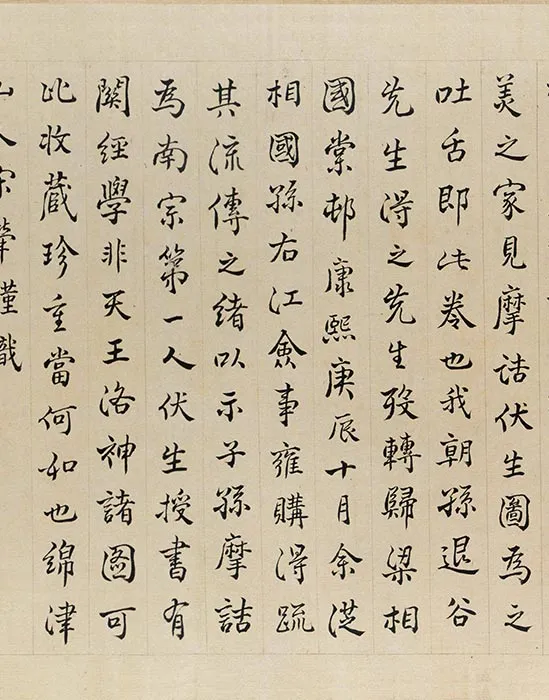 美之家見摩詰伏生圖為之
吐舌即此卷也我朝孫退谷
先生得之先生歿轉歸梁相
國棠邨康熙庚辰十月余從
相國孫右江僉事雍購得疏
其流傳之緒以示子孫摩詰
為南宗第一人伏生授書有
關經學非天王洛神諸圖可
比收藏珍重當何如也綿津
山人宋犖謹識